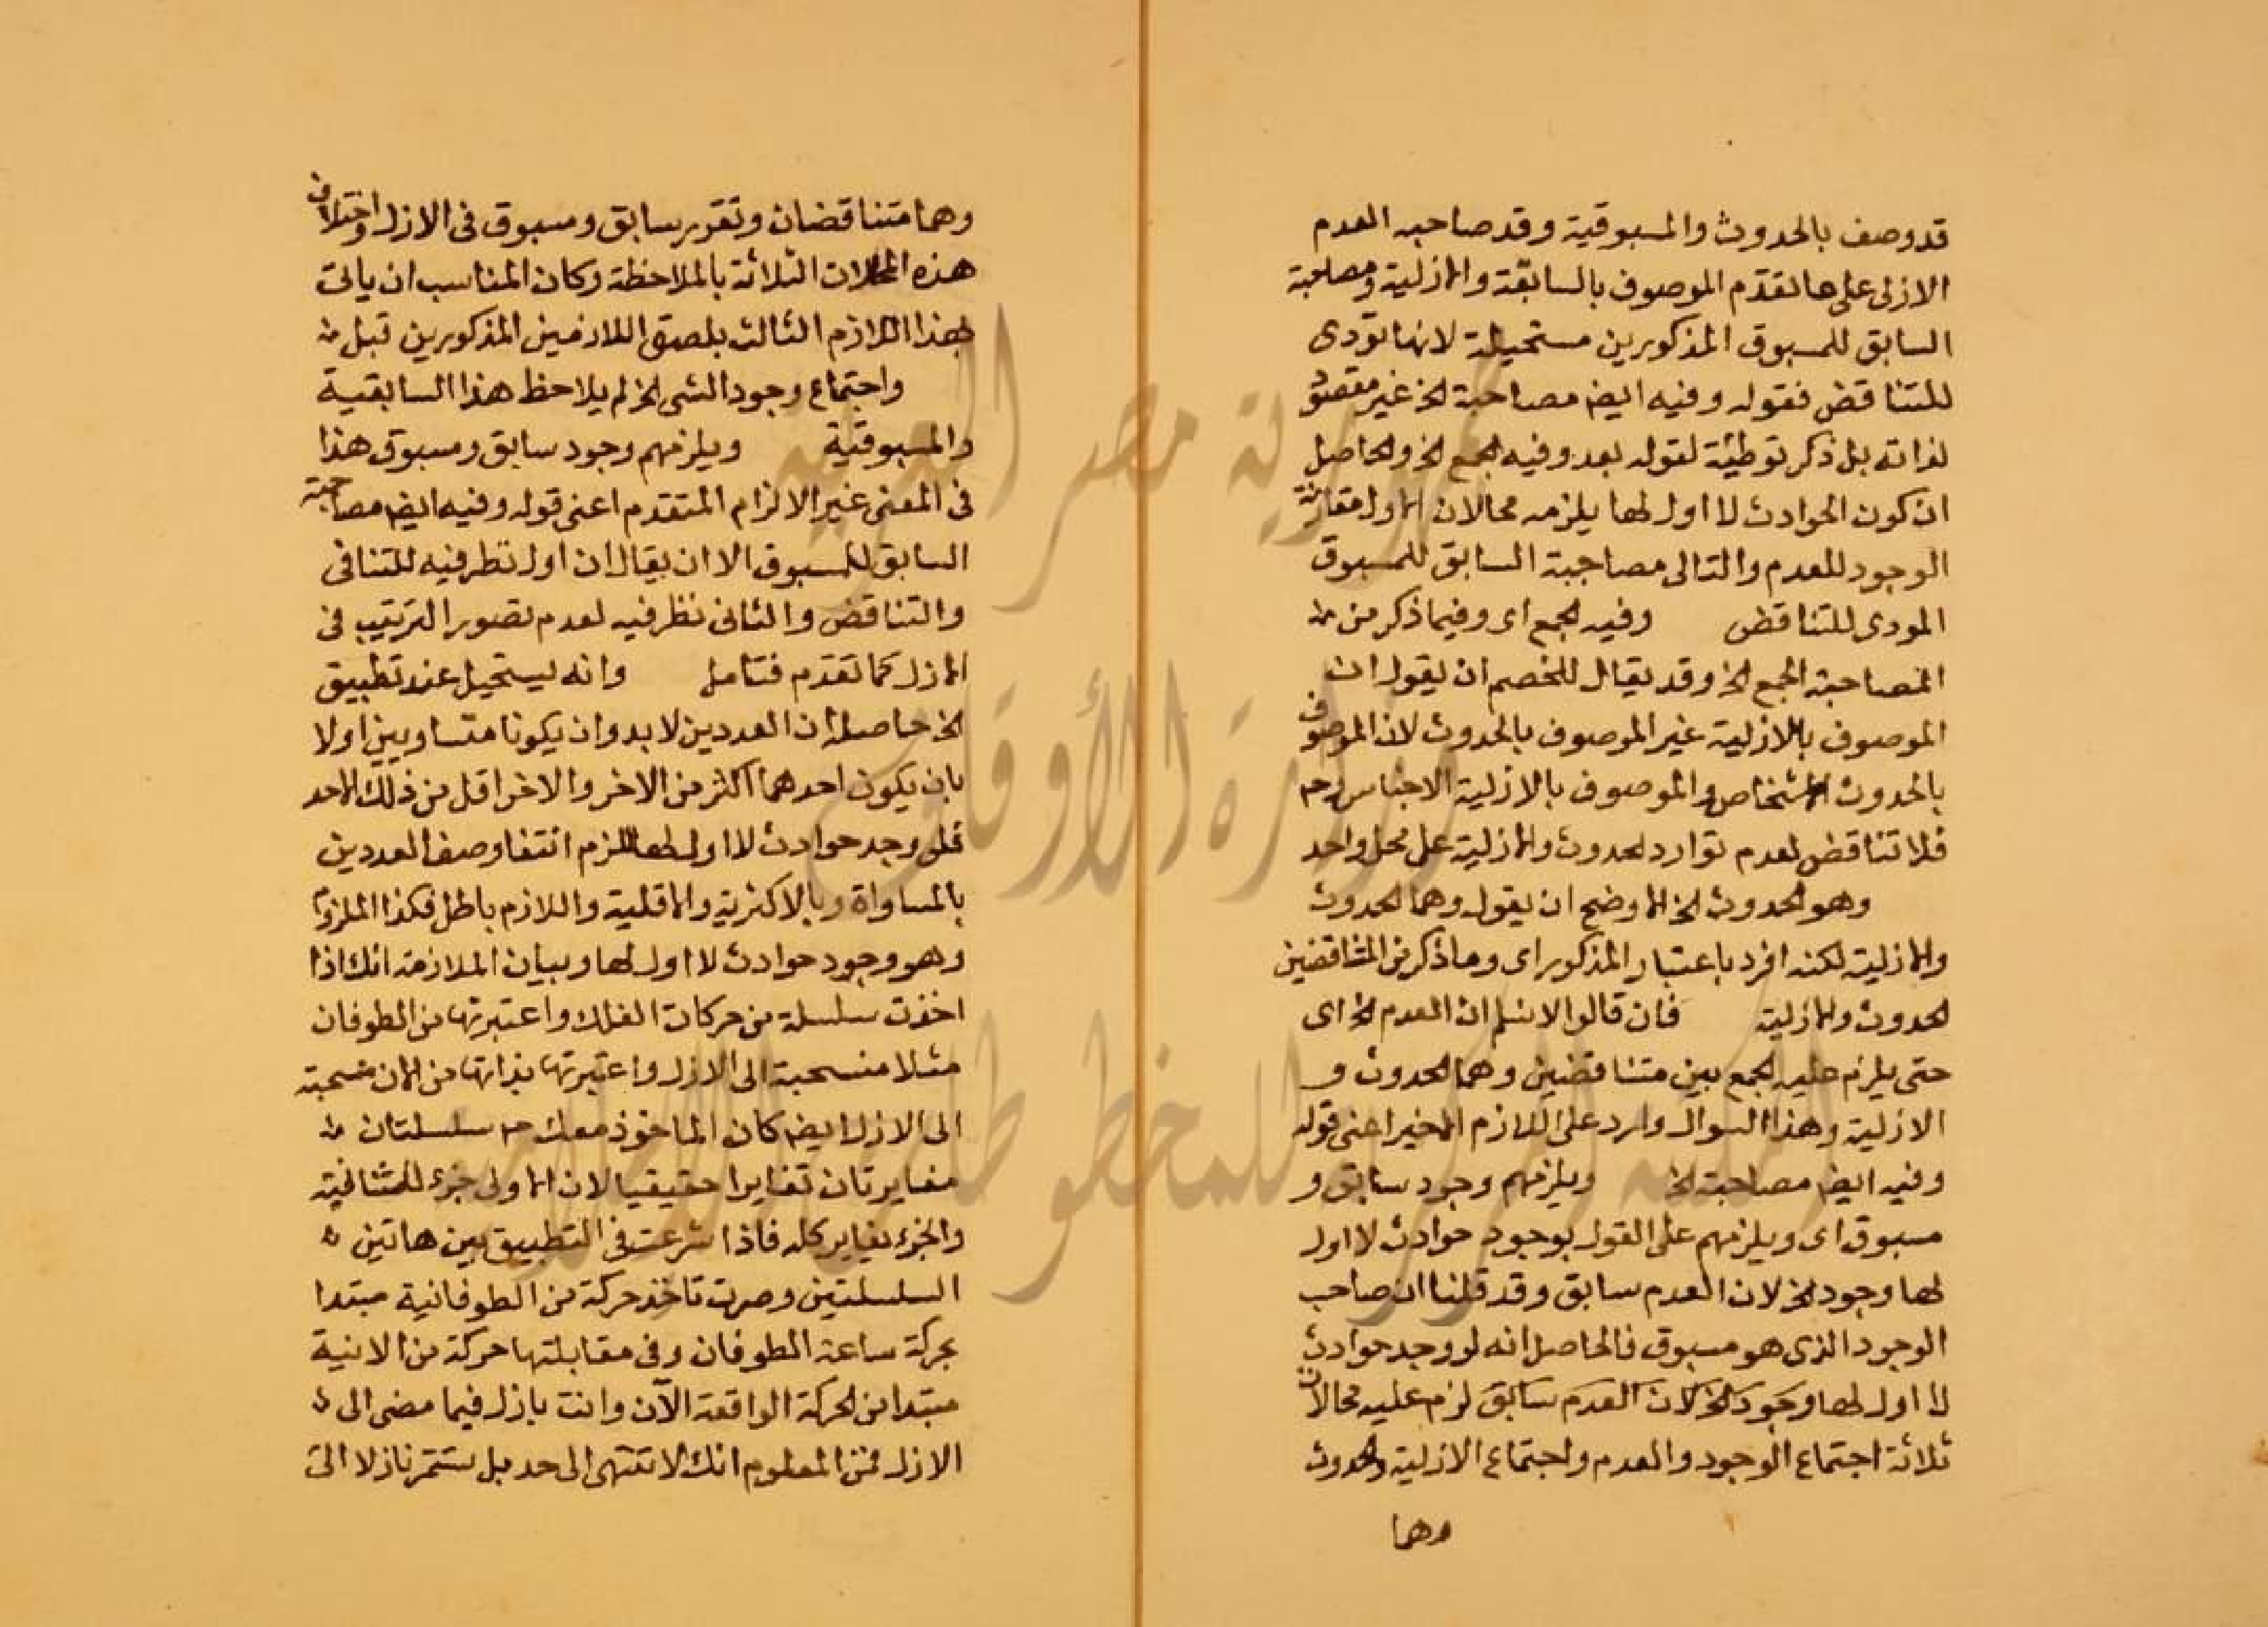 قد وصف بالحدوث والمسبوقية وقد صاحبه العدم
الازلى على ما تقدم الموصوف بالسابقة والازلية ومصاحبة
السابق للمسبوق المذكورين مستحيلة لانها تؤدى
للتناقض فقوله وفيه ايض مصاحبة الخ غير مقصود
لذاته بل ذكر توطئة لقوله بعد وفيه الجمع الخ والحاصل
ان كون الحوادث لا اول لها يلزمه محالان الاول مقارنة
الوجود للعدم والتالى مصاحبة السابق للمسبوق
المودى للتناقض وفيه الجمع اى وفيما ذكر من
المصاحبة الجمع الخ وقد يقال للخصم ان يقول ان
الموصوف بالازلية غير الموصوف بالحدوث لان الموصوف
بالحدوث الاشخاص والموصوف بالازلية الاجناس وح
فلا تناقض لعدم توارد الحدوث والازلية على محل واحد
وهو الحدوث الخ الاوضح ان يقول وهما الحدوث
والازلية لكنه افرد باعتبار المذكور اى وما ذكر من المتناقضين
الحدوث والازلية فان قالوا لا نسلم ان العدم الخ اى
حتى يلزم عليه الجمع بين متناقضين وهما الحدوث و
الازلية وهذا السوال وارد على اللازم الاخير اعنى قوله
وفيه ايض مصاحبة الخ ويلزمهم وجود سابق و
مسبوق اى ويلزمهم على القول بوجود حوادث لا اول
لها وجود الخ لان العدم سابق وقد قلنا ان صاحب
الوجود الذى هو مسبوق فالحاصل انه لو وجد حوادث
لا اول لها وجود الخ لان العدم سابق لزم عليه محالات
ثلاثة اجتماع الوجود والعدم واجتماع الازلية والحدوث
وهما
وهما متناقضان وتقرر سابق ومسبوق فى الازل واختلاف
هذه المحالات الثلاثة بالملاحظة وكان المناسب ان ياتى
بهذا اللازم الثالث بلصق اللازمين المذكورين قبل
واجتماع وجود الشى الخ لم يلاحظ هذا السابقية
والمسبوقية ويلزمهم وجود سابق ومسبوق هذا
فى المعنى غير الالزام المتقدم اعنى قوله وفيه ايض مصاحبة
السابق للمسبوق الا ان يقال ان اول نظر فيه للتنافى
والتناقض والثانى نظر فيه لعدم تصور الترتيب فى
الازل كما تقدم فتامل وانه ليستحيل عند تطبيق
الخ حاصله ان العددين لا بد وان يكونا متساويين اولا
بان يكون احدهما اكثر من الاخر والاخر اقل من ذلك الاحد
فلو وجد حوادث لا اول لها للزم انتفا وصف العددين
بالمساواة وبالاكثرية والاقلية واللازم باطل فكذا الملزوم
وهو وجود حوادث لا اول لها وبيان الملازمة انك اذا
اخذت سلسلة من حركات الفلك واعتبرتها من الطوفان
مثلا منسحبة الى الازل واعتبرتها بذاتها من الان منسحبة
الى الازل ايض كان الماخوذ معك ح سلسلتان
مغايرتان تغايرا حقيقيا لان الاولى جزء للثانية
والجزء يغاير كله فاذا شرعت فى التطبيق بين هاتين
السلسلتين وصرت تاخذ حركة من الطوفانية مبتدا
بحركة ساعة الطوفان وفى مقابلتها حركة من الانية
مبتدا من الحركة الواقعة الآن وانت نازل فيما مضى الى
الازل فمن المعلوم انك لا تنتهى الى حد بل تستمر نازلا الى
جمهورية مصر العربية
وزارة الأوقاف
المكتبة المركزية للمخطوطات الإسلامية